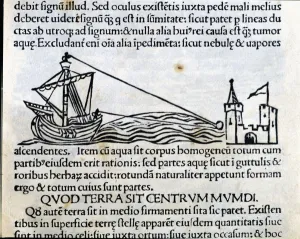 debit signũ illud. Sed oculus existẽtis iuxta pedẽ mali melius
deberet uidere signũ q̃ q est in sũmitate: sicut patet p lineas du
ctas ab utroq; ad signum: & nulla alia hui⁹ rei causa est q̃ tumor
aquę. Excludant̃ eni oĩa alia ĩpedimẽta: sicut nebulę & uapores
ascendentes. Item cũ aqua sit corpus homogeneũ totum cum
partib⁹ eiusdem erit rationis: sed partes aquę sicut ĩ guttulis &
roribus herbaꝝ accidit: rotundã naturaliter appetunt formam
ergo & totum cuius sunt partes.
QVOD TERRA SIT CENTRVM MVMDI.
Qđ autẽ terra sit in medio firmamenti sita sic patet. Existen
tibus in superficie terrę stellę apparẽt eiusdem quantitatis siue
sint in medio cęli: siue iuxta ortum: siue iuxta occasum: & hoc